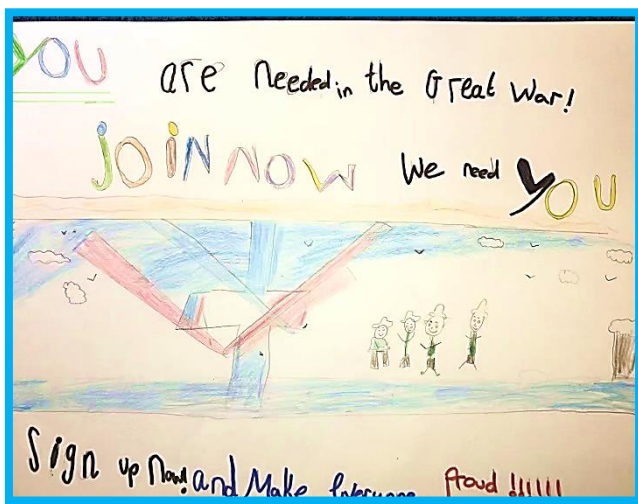 YOU are Needed in the Great War!
JOIN NOW We need YOU
Sign up Now! and Make Everyone Proud !!!!!!